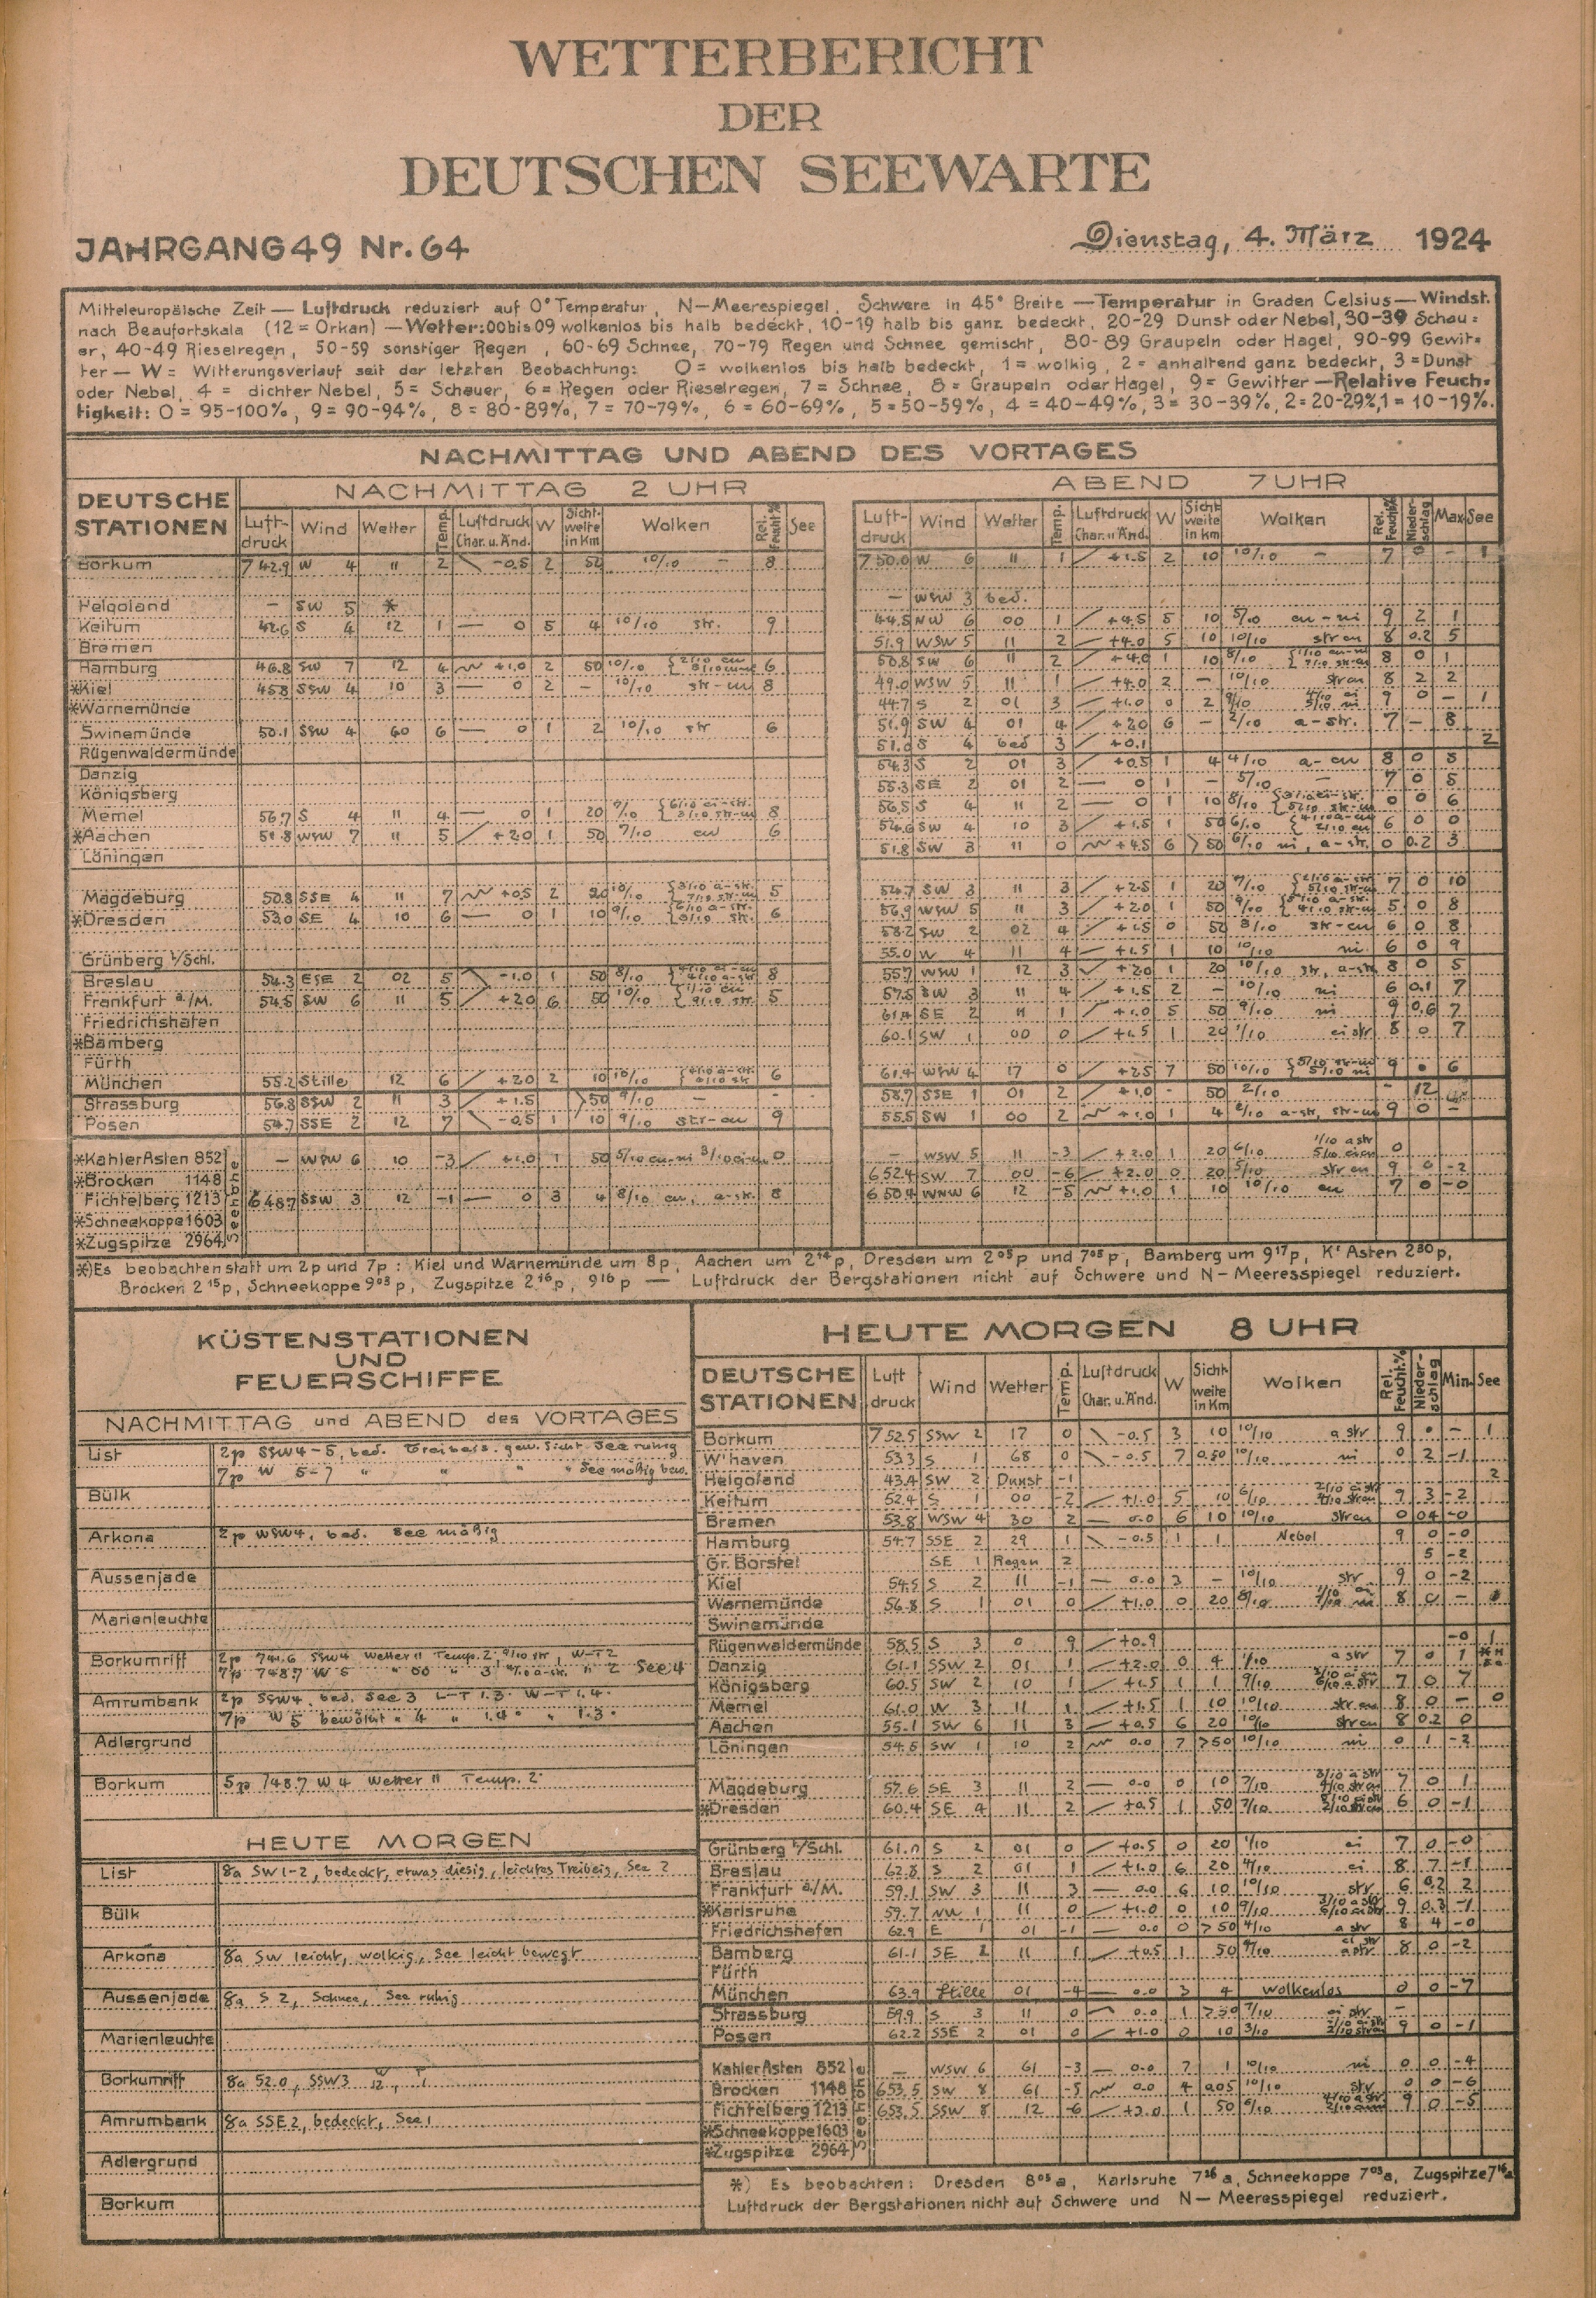 WETTERBERICHT
DER
DEUTSCHEN SEEWARTE
JAHRGANG 49 Nr. 64
Dienstag, 4. März 1924
Mitteleuropäische Zeit — Luftdruck reduziert auf 0° Temperatur, N—Meerespiegel, Schwere in 45° Breite — Temperatur in Graden Celsius — Windst.
nach Beaufortskala (12 = Orkan) — Wetter: 00 bis 09 wolkenlos bis halb bedeckt, 10-19 halb bis ganz bedeckt, 20-29 Dunst oder Nebel, 30-39 Schau=
er, 40-49 Rieselregen, 50-59 sonstiger Regen, 60-69 Schnee, 70-79 Regen und Schnee gemischt, 80-89 Graupeln oder Hagel, 90-99 Gewit=
ter — W = Witterungsverlauf seit der letzten Beobachtung: 0 = wolkenlos bis halb bedeckt, 1 = wolkig, 2 = anhaltend ganz bedeckt, 3 = Dunst
oder Nebel, 4 = dichter Nebel, 5 = Schauer, 6 = Regen oder Rieselregen, 7 = Schnee, 8 = Graupeln oder Hagel, 9 = Gewitter — Relative Feuch=
tigkeit: 0 = 95-100%, 9 = 90-94%, 8 = 80-89%, 7 = 70-79%, 6 = 60-69%, 5 = 50-59%, 4 = 40-49%, 3 = 30-39%, 2 = 20-29%, 1 = 10-19%.
NACHMITTAG UND ABEND DES VORTAGES
DEUTSCHE STATIONEN
NACHMITTAG 2 UHR
Luft-druck Wind Wetter Temp. Luftdruck Char. u. Änd. W Sicht-weite in Km Wolken Rel. Feucht.% See
Borkum 742.9 W 4 11 2 -0.5 2 50 10/10 — 8
Helgoland — SW 5 *
Keitum 42.6 S 4 12 1 — 0 5 4 10/10 str. 9
Bremen
Hamburg 46.8 SW 7 12 4 +1.0 2 50 10/10 6
*Kiel 45.8 SSW 4 10 3 — 0 2 — 10/10 str-cu 8
*Warnemünde
Swinemünde 50.1 SSW 4 60 6 — 0 1 2 10/10 str 6
Rügenwaldermünde
Danzig
Königsberg
Memel 56.7 S 4 11 4 — 0 1 20 8
*Aachen 51.8 WSW 7 11 5 +2.0 1 50 9/10 cu 6
Löningen
Magdeburg 50.8 SSE 4 11 7 +0.5 2 20 10/10 5
*Dresden 53.0 SE 4 10 6 — 0 1 10 9/10 6
Grünberg i/Schl.
Breslau 54.3 ESE 2 02 5 -1.0 1 50 8/10 8
Frankfurt a./M. 54.5 SW 6 11 5 +2.0 6 50 10/10 5
Friedrichshafen
*Bamberg
Fürth
München 55.2 Stille 12 6 +2.0 2 10 10/10 6
Strassburg 56.8 SSW 2 11 3 +1.5 >50 9/10 —
Posen 54.7 SSE 2 12 7 -0.5 1 10 9/10 str-cu 9
Seehöhe
*Kahler Asten 852 — WSW 6 10 -3 +1.0 1 50 0
*Brocken 1148
Fichtelberg 1213 648.7 SSW 3 12 -1 — 0 3 4 8/10 cu, a-str. 8
*Schneekoppe 1603
*Zugspitze 2964
ABEND 7 UHR
Luft-druck Wind Wetter Temp. Luftdruck Char. u. Änd. W Sicht weite in Km Wolken Rel. Feucht.% Nieder-schlag Max. See
750.0 W 6 11 1 +1.5 2 10 10/10 — 7 0 — 1
— WSW 3 bed.
44.5 NW 6 00 1 +4.5 5 10 5/10 cu-ni 9 2 1
51.9 WSW 5 11 2 +4.0 5 10 10/10 str cu 8 0.2 5
50.8 SW 6 11 2 +4.0 1 10 8/10 8 0 1
49.0 WSW 5 11 1 +4.0 2 — 10/10 str cu 8 2 2
44.7 S 2 01 3 +1.0 0 2 9/10 9 0 — 1
51.9 SW 4 01 4 +2.0 6 — 2/10 a-str. 7 — 8
51.0 S 4 bed 3 +0.1 2
54.3 S 2 01 3 +0.5 1 4 4/10 a-cu 8 0 5
55.3 SE 2 01 2 — 0 1 — 5/10 — 7 0 5
56.5 S 4 11 2 — 0 1 10 8/10 0 0 6
52.6 SW 4 10 3 +1.5 1 50 6/10 6 0 0
51.8 SW 3 11 0 +4.5 6 >50 6/10 ni, a-str. 0 0.2 3
52.7 SW 3 11 3 +2.5 1 20 9/10 7 0 10
56.9 WSW 5 11 3 +2.0 1 50 9/10 5 0 8
58.2 SW 2 02 4 +1.5 0 50 8/10 str-cu 6 0 8
55.0 W 4 11 4 +1.5 1 10 10/10 ni 6 0 9
55.7 WSW 1 12 3 +2.0 1 20 10/10 str, a-str 8 0 5
57.5 SW 3 11 4 +1.5 2 — 10/10 ni 6 0.1 7
61.4 SE 2 11 1 +1.0 5 50 9/10 ni 9 0.6 7
60.1 SW 1 00 0 +1.5 1 20 1/10 ci str 8 0 7
61.4 WSW 4 17 0 +2.5 7 50 10/10 9 0 6
58.7 SSE 1 01 2 +1.0 — 50 2/10 — 12
55.5 SW 1 00 2 +1.0 1 4 2/10 a-str, str-cu 9 0 —
— WSW 5 11 -3 +2.0 1 20 6/10 0
652.4 SW 7 00 -6 +2.0 0 20 5/10 str cu 9 0 -2
650.4 WNW 6 12 -5 +1.0 1 10 10/10 cu 7 0 -0
*) Es beobachten statt um 2p und 7p: Kiel und Warnemünde um 8p, Aachen um 2¹⁴p, Dresden um 2⁰⁵p und 7⁰⁵p, Bamberg um 9¹⁷p, Kʳ Asten 2³⁰p,
Brocken 2¹⁵p, Schneekoppe 9⁰³p, Zugspitze 2¹⁶p, 9¹⁶p — Luftdruck der Bergstationen nicht auf Schwere und N—Meeresspiegel reduziert.
KÜSTENSTATIONEN
UND
FEUERSCHIFFE
NACHMITTAG und ABEND des VORTAGES
List 2p SSW 4-5, bed. Treibeis. gew. Sicht See ruhig
7p W 5-7 " " " " See mäßig bew.
Bülk
Arkona 2p WSW 4, bed. See mäßig
Aussenjade
Marienleuchte
Borkumriff 2p 741.6 SSW 4 Wetter 11 Temp. 2. 9/10 str, W-T 2
7p 748.7 W 5 " 00 " 3 a-str. " 2 See 4
Amrumbank 2p SSW 4. bed. See 3 L-T 1.3. W-T 1.4.
7p W 5 bewölkt " 4 " 1.4. " 1.3.
Adlergrund
Borkum 5p 748.7 W 4 Wetter 11 Temp. 2.
HEUTE MORGEN
List 8a SW 1-2, bedeckt, etwas diesig, leichtes Treibeis, See 2
Bülk
Arkona 8a SW leicht, wolkig, See leicht bewegt
Aussenjade 8a S 2, Schnee, See ruhig
Marienleuchte
Borkumriff 8a 52.0, SSW 3 W 12, T 1
Amrumbank 8a SSE 2, bedeckt, See 1
Adlergrund
Borkum
HEUTE MORGEN 8 UHR
DEUTSCHE STATIONEN Luft druck Wind Wetter Temp. Luftdruck Char. u. Änd. W Sicht-weite in Km Wolken Rel. Feucht.% Nieder-schlag Min. See
Borkum 752.5 SSW 2 17 0 -0.5 3 10 10/10 a str 9 0 — 1
W'haven 53.3 S 1 68 0 -0.5 7 0.50 10/10 ni 0 2 -1
Helgoland 43.4 SW 2 Dunst -1 2
Keitum 52.4 S 1 00 -2 +1.0 5 10 6/10 9 3 -2
Bremen 53.8 WSW 4 30 2 — 0.0 6 10 10/10 str cu 0 0.4 -0
Hamburg 54.7 SSE 2 29 1 -0.5 1 1 Nebel 9 0 -0
Gr. Borstel SE 1 Regen 2 5 -2
Kiel 54.5 S 2 11 -1 — 0.0 3 — 10/10 str 9 0 -2
Warnemünde 56.8 S 1 01 0 +1.0 0 20 8/10 8 0 —
Swinemünde
Rügenwaldermünde 58.5 S 3 0 9 +0.9 -0 1
Danzig 61.1 SSW 2 01 1 +2.0 0 4 1/10 a str 7 0 1
Königsberg 60.5 SW 2 10 1 +1.5 1 1 9/10 7 0 7
Memel 61.0 W 3 11 1 +1.5 1 10 10/10 str cu 8 0 — 0
Aachen 55.1 SW 6 11 3 +0.5 6 20 10/10 str cu 8 0.2 0
Löningen 54.5 SW 1 10 2 0.0 7 >50 10/10 ni 0 1 -2
Magdeburg 57.6 SE 3 11 2 — 0.0 0 10 7/10 7 0 1
*Dresden 60.4 SE 4 11 2 +0.5 1 50 7/10 6 0 -1
Grünberg i/Schl. 61.0 S 2 01 0 +0.5 0 20 1/10 ci 7 0 -0
Breslau 62.8 S 2 01 1 +1.0 6 20 4/10 ci 8 7 -1
Frankfurt a./M. 59.1 SW 3 11 3 — 0.0 6 10 10/10 str 6 0.2 2
*Karlsruhe 59.7 NW 1 11 0 +1.0 0 10 9/10 9 0.3 -1
Friedrichshafen 62.9 E 1 01 -1 — 0.0 0 >50 4/10 a str 8 4 -0
Bamberg 61.1 SE 2 11 1 +0.5 1 50 9/10 8 0 -2
Fürth
München 63.9 Stille 01 -4 — 0.0 3 4 wolkenlos 0 0 -7
Strassburg 59.9 S 3 11 0 0.0 1 >50 7/10 ci str —
Posen 62.2 SSE 2 01 0 +1.0 0 10 3/10 9 0 -1
Seehöhe
Kahler Asten 852 — WSW 6 61 -3 — 0.0 7 1 10/10 ni 0 0 -4
Brocken 1148 653.5 SW 8 61 -5 0.0 4 0.05 10/10 str 0 0 -6
Fichtelberg 1213 653.5 SSW 8 12 -6 +3.0 1 50 6/10 9 0 -5
*Schneekoppe 1603
*Zugspitze 2964
*) Es beobachten: Dresden 8⁰⁵a, Karlsruhe 7³⁶a, Schneekoppe 7⁰³a, Zugspitze 7¹⁶a
Luftdruck der Bergstationen nicht auf Schwere und N—Meeresspiegel reduziert.